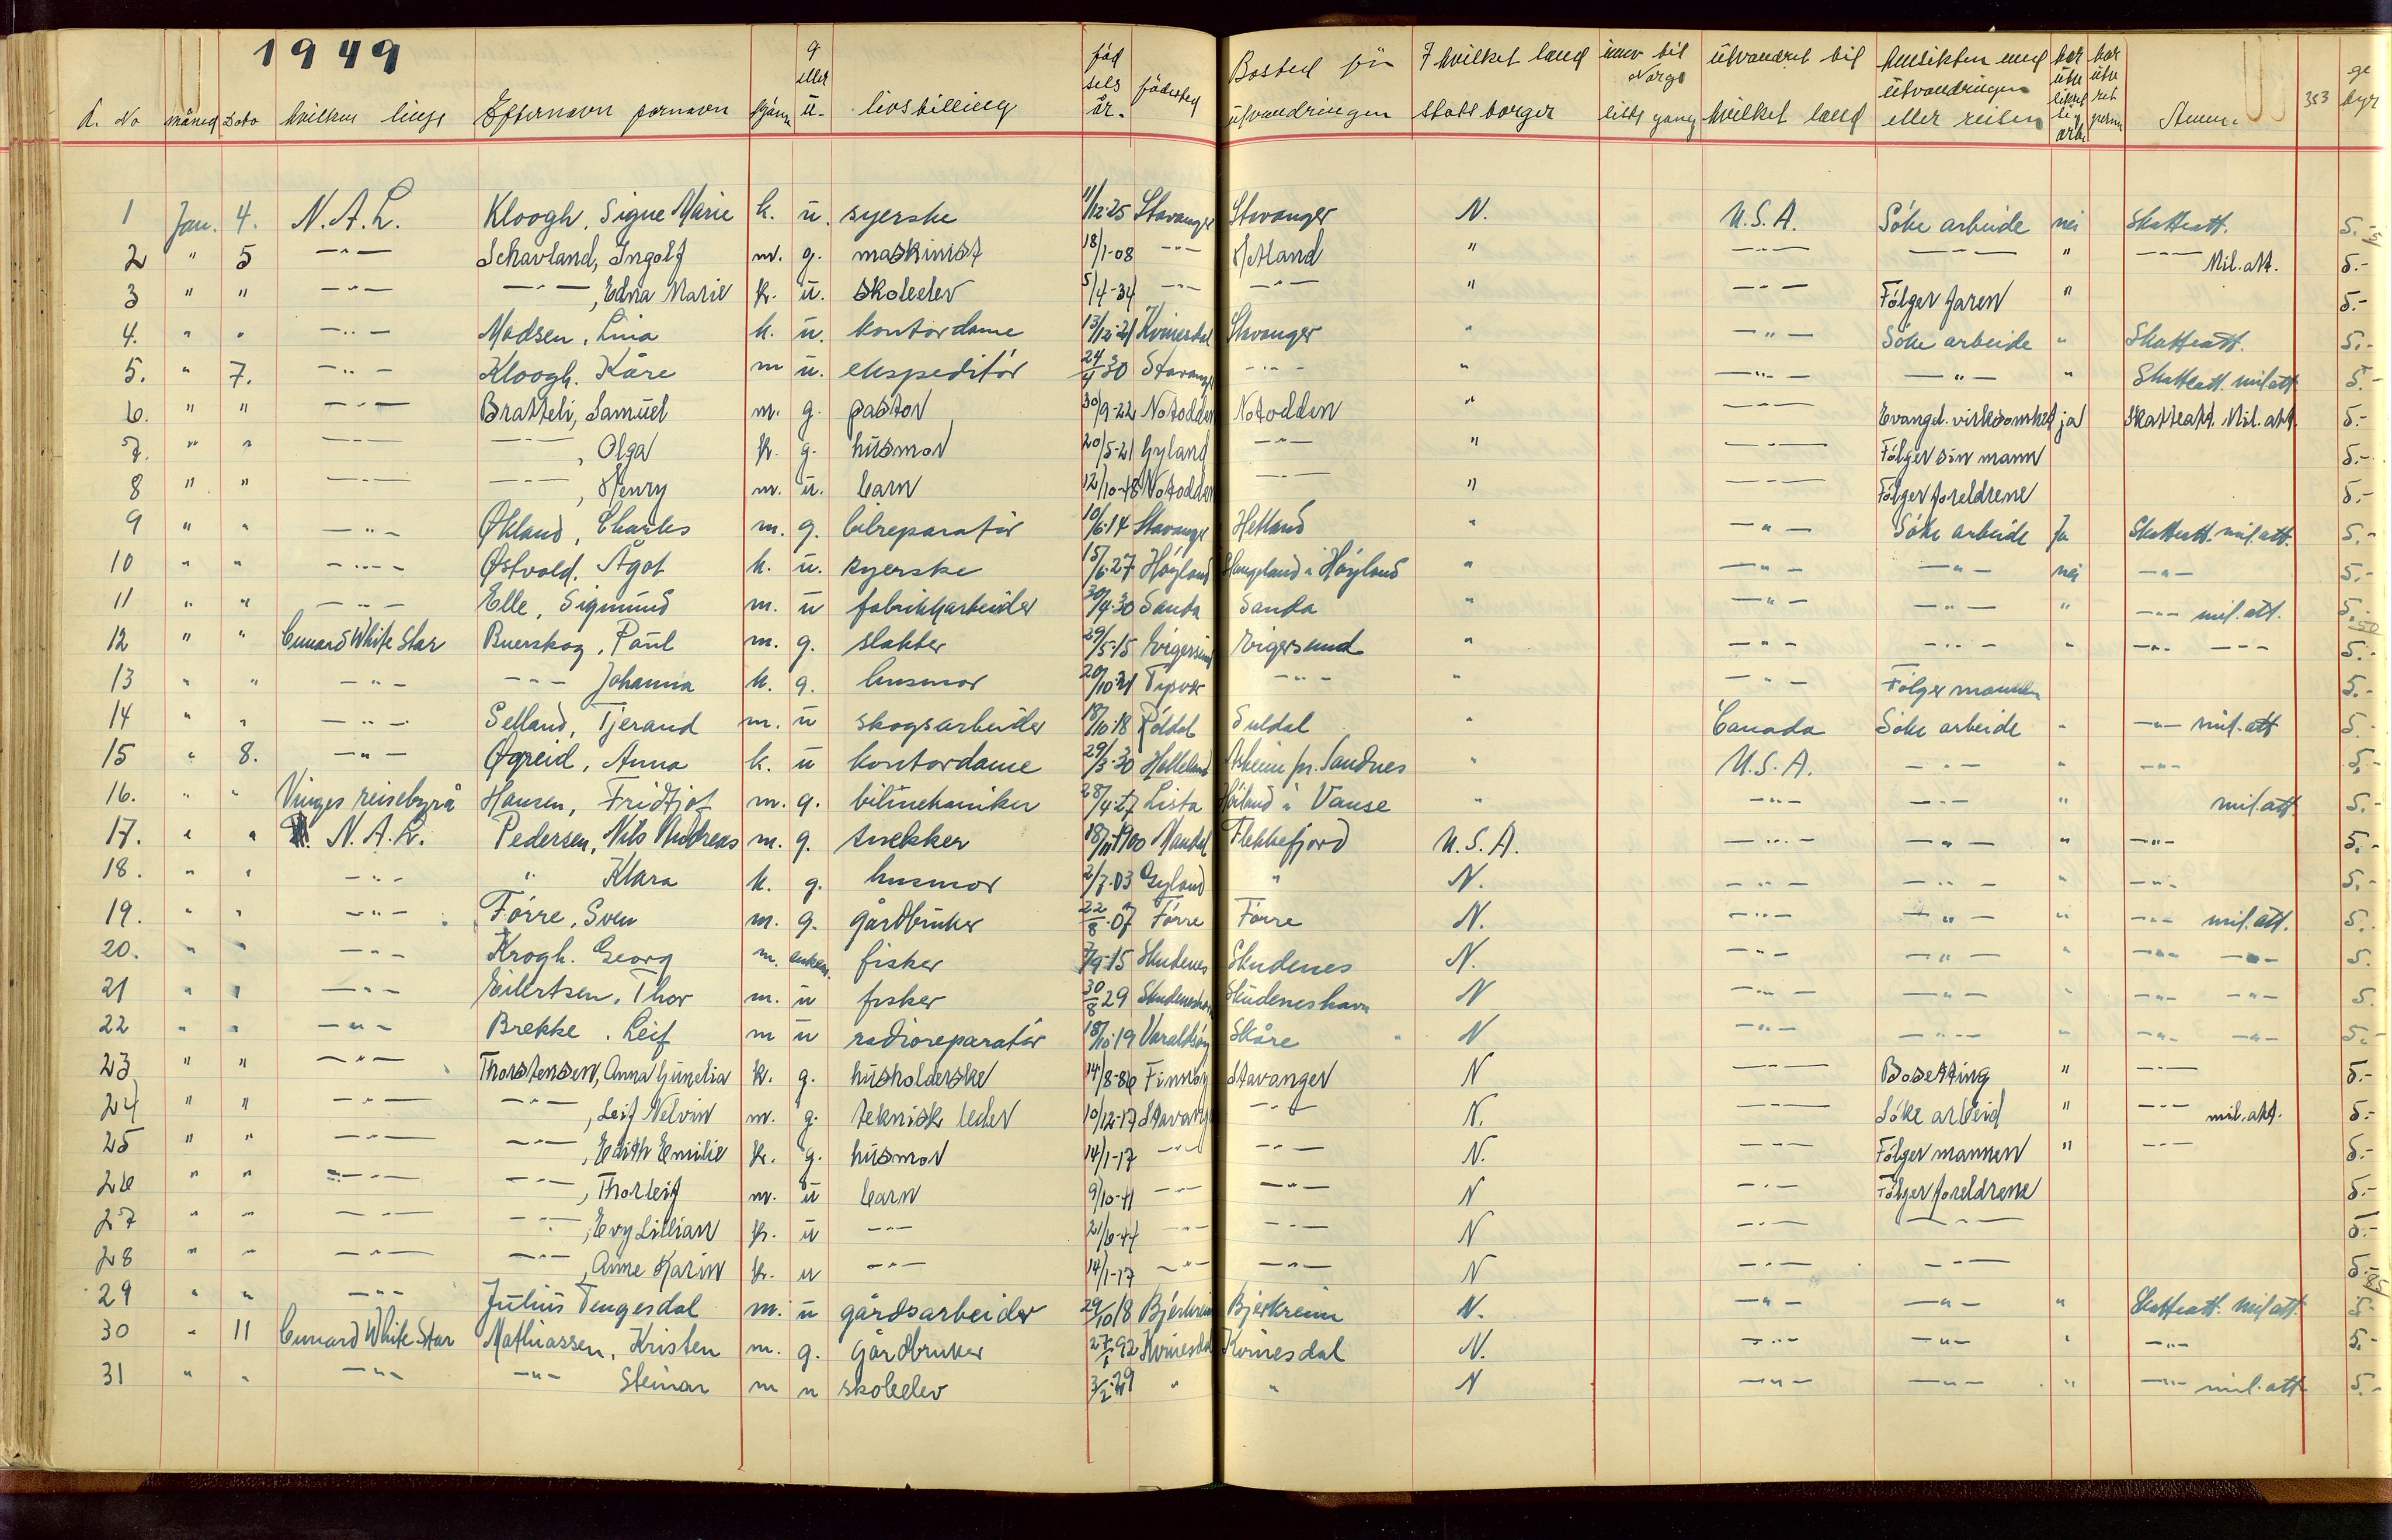 1949
L. No måned Dato hvilken linje Efternavn fornavn kjønn g eller u. livsstilling fød sels år. fødested Bosted før utvandringen I hvilket land statsborger innv til Norge siste gang utvandret til hvilket land Hensikten med utvandringen eller reisen har utv Anm. 353 ge byr
1 Jan. 4. N.A.L. Kloogh, Signe Marie k. u. syerske 11/12-25 Stavanger Stavanger N. U.S.A. Söke arbeide nei Skatteatt. 5.-
2 " 5 -"- Schavland, Ingolf m. g. maskinist 18/1-08 -"- Hetland " -"- -"- " -"- Mil.att. 5.-
3 " " -"- -"-, Edna Marie k. u. skoleelev 5/4-34 -"- -"- " -"- Fölger faren " 5.-
4. " " -"- Madsen, Lina k. u. kontordame 13/12-21 Kvinesdal Stavanger " -"- Söke arbeide " Skatteatt. 5.-
5. " 7. -"- Kloogh. Kåre m u. ekspeditör 24/4 30 Stavanger -"- " -"- -"- " Skatteatt. mil att 5.-
6. " " -"- Bratteli, Samuel m. g. pastor 30/9-22 Notodden Notodden " -"- Evangel. virksomhet ja Skatteatt. Mil. att. 5.-
7. " " -"- -"-, Olga k. g. husmor 20/5-21 Gyland -"- " -"- Fölger sin mann 5.-
8 " " -"- -"-, Henry m. u. barn 12/10-48 Notodden -"- " -"- Fölger foreldrene 5.-
9 " " -"- Økland, Charles m. g. bilreparatör 10/6-14 Stavanger Hetland " -"- Söke arbeide Ja Skatteatt. mil.att. 5.-
10 " " -"- Østvold. Ågot k. u. syerske 15/6-27 Höyland Hongeland i Höyland " -"- -"- nei -"- 5.-
11 " " -"- Elle, Sigmund m. u fabrikkarbeider 30/4-30 Sauda Sauda " -"- -"- " -"- mil.att. 5.-
12 " " Cunard White Star Buerskog, Paul m. g. slakter 29/5-15 Eigersund Eigersund " -"- -"- " -"- -"- 5.-
13 " " -"- -"- Johanna k. g. husmor 20/10-21 Tysvær -"- " -"- Fölger mannen 5.-
14 " " -"- Selland, Tjerand m. u skogsarbeider 18/10-18 Röldal Suldal " Canada Söke arbeide " -"- mil.att 5.-
15 " 8. -"- Øgreid, Anna k. u kontordame 29/3-30 Helleland Asheim pr. Sandnes " U.S.A. -"- " -"- 5.-
16. " " Vinges reisebyrå Hansen, Fridtjof m. g. bilmekaniker 28/4-27 Lista i Vanse " -"- -"- " mil.att. 5.-
17. " " N.A.L. Pedersen, Nils Andreas m. g. snekker 18/11-1900 Mandal Flekkefjord U.S.A. -"- -"- " -"- 5.-
18. " " -"- " Klara k. g. husmor 2/7-03 Gyland " N. -"- -"- " -"- 5.-
19. " " -"- Förre, Sven m. g. gårdbruker 22/8-07 Förre Förre N. -"- -"- " -"- mil.att. 5.
20. " " -"- Krogh. Georg m. enkem. fisker 7/9-15 Skudenes Skudenes N. -"- -"- " -"- -"- 5.
21 " " -"- Eilertsen, Thor m. u fisker 30/8 29 Skudeneshavn Skudeneshavn N -"- -"- " -"- -"- 5.
22 " " -"- Brekke. Leif m u radioreparatör 18/10-19 Varaldsöy Skåre N -"- -"- " -"- -"- 5.-
23 " " -"- Thorstensen, Anna Gunelia k. g. husholderske 14/8-86 Finnöy Stavanger N -"- Bosetting " -"- 5.-
24 " " -"- -"-, Leif Nelvin m. g. teknisk leder 10/12-17 Stavanger -"- N. -"- Söke arbeid " -"- mil.att. 5.-
25 " " -"- -"-, Edith Emilie k. g. husmor 14/1-17 -"- -"- N. -"- Fölger mannen " -"- 5.-
26 " " -"- -"-, Thorleif m. u barn 9/10-41 -"- -"- N -"- Fölger foreldrene 5.-
27 " " -"- -"-, Evy Lillian k. u -"- 21/6-44 -"- -"- N -"- -"- 5.-
28 " " -"- -"-, Anne Karin k. u -"- 14/1-17 -"- -"- N -"- -"- 5.-
29 " " -"- Julius Tengesdal m. u gårdsarbeider 29/10 18 Bjerkreim Bjerkreim N. -"- -"- " Skatteatt. mil att. 5-
30 " 11 Cunard White Star Mathiassen, Kristen m. g. gårdbruker 27/1-92 Kvinesdal Kvinesdal N. -"- -"- " -"- 5.-
31 " " -"- -"- Steinar m u skoleelev 3/2-29 " " N -"- -"- " -"- mil.att 5.-